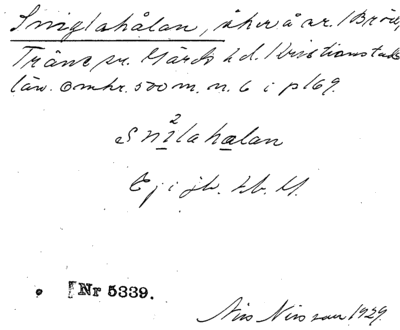 Sniglahålan, åker å nr. 1 Bröd,
Träne sn. Gärds hd. Kristianstads
län. omkr. 500 m. n. 6 i p 169.
2
Snilahalan
Ej i jb. kb. K.
[Nr 5339.
Nils Nilsson 1929.